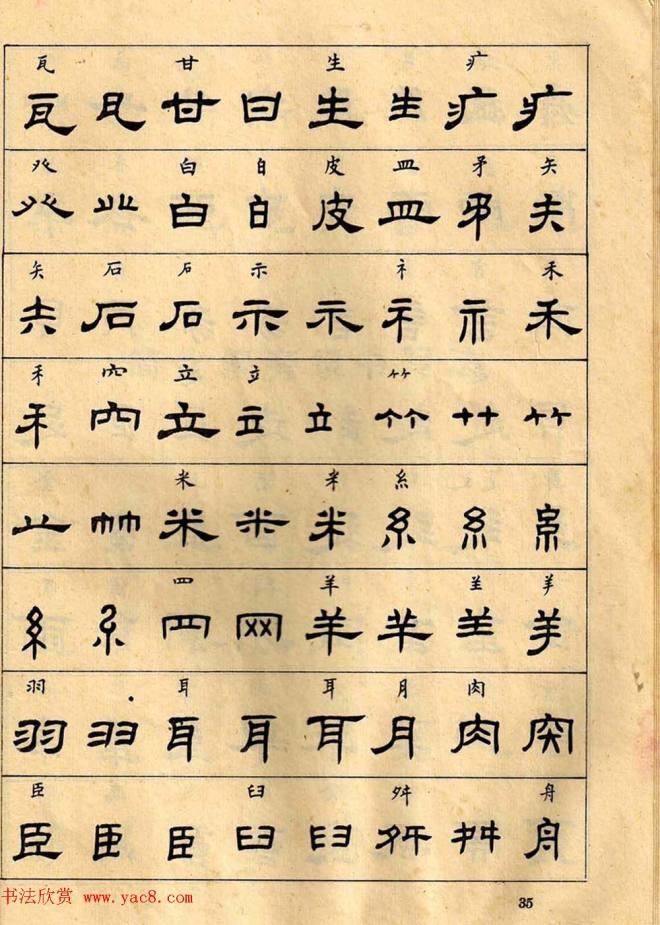 瓦 甘 生 疒
瓦 瓦 甘 甘 生 生 疒 疒
癶 白 白 皮 皿 矛 矢
癶 癶 白 白 皮 皿 矛 矢
矢 石 石 示 礻 禾
矢 石 石 示 示 礻 示 禾
禾 穴 立 立 ⺮
禾 穴 立 立 立 ⺮ ⺮ ⺮
米 米 糸
⺮ ⺮ 米 米 米 糸 糸 糸
罒 羊 羊 羊
糸 糸 罒 网 羊 羊 羊 羊
羽 耳 耳 月 肉
羽 羽 耳 耳 耳 月 肉 肉
臣 臼 舛 舟
臣 臣 臣 臼 臼 舛 舛 舟
书法欣赏 www.yac8.com
35